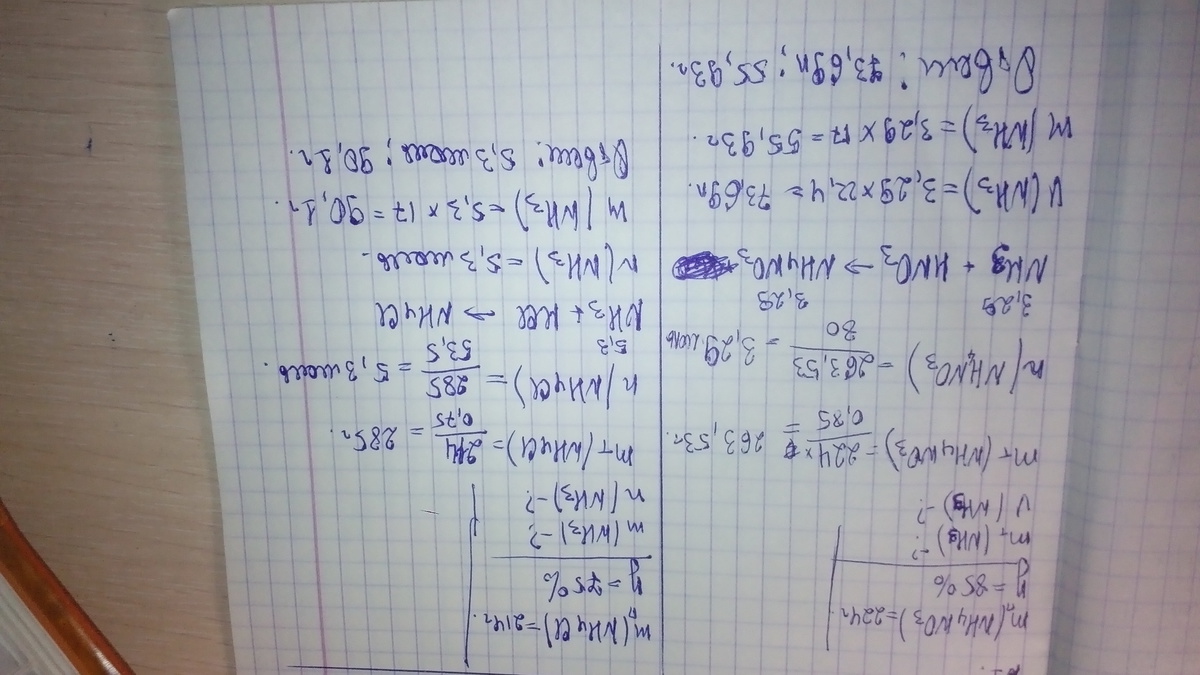 mп(NH₄NO₃)=224г
η=85%
mт(NH₃)-?
V(NH₃)-?
mт(NH₄NO₃)=224/0,85 = 263,53г.
n(NH₄NO₃)=263,53/80=3,29моль
3,29 3,29
NH₃ + HNO₃ → NH₄NO₃
V(NH₃)=3,29×22,4=73,69л.
m(NH₃)=3,29×17=55,93г.
Ответ: 73,69л; 55,93г.
mп(NH₄Cl)=214г.
η=75%
m(NH₃)-?
n(NH₃)-?
mт(NH₄Cl)=214/0,75=285г.
n(NH₄Cl)=285/53,5=5,3моль.
5,3
NH₃+HCl → NH₄Cl
n(NH₃)=5,3моль.
m(NH₃)=5,3×17=90,1г.
Ответ: 5,3моль; 90,1г.